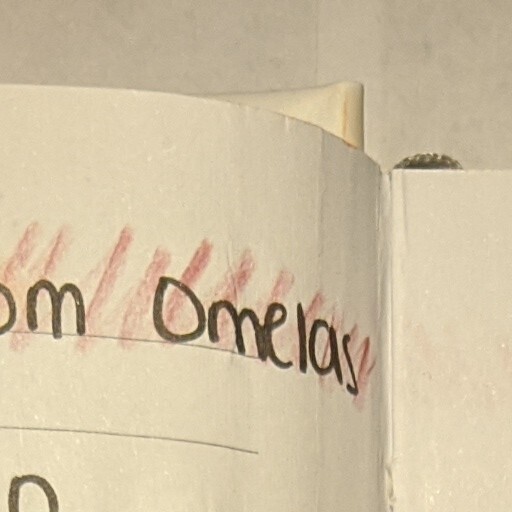 om Omelas
n